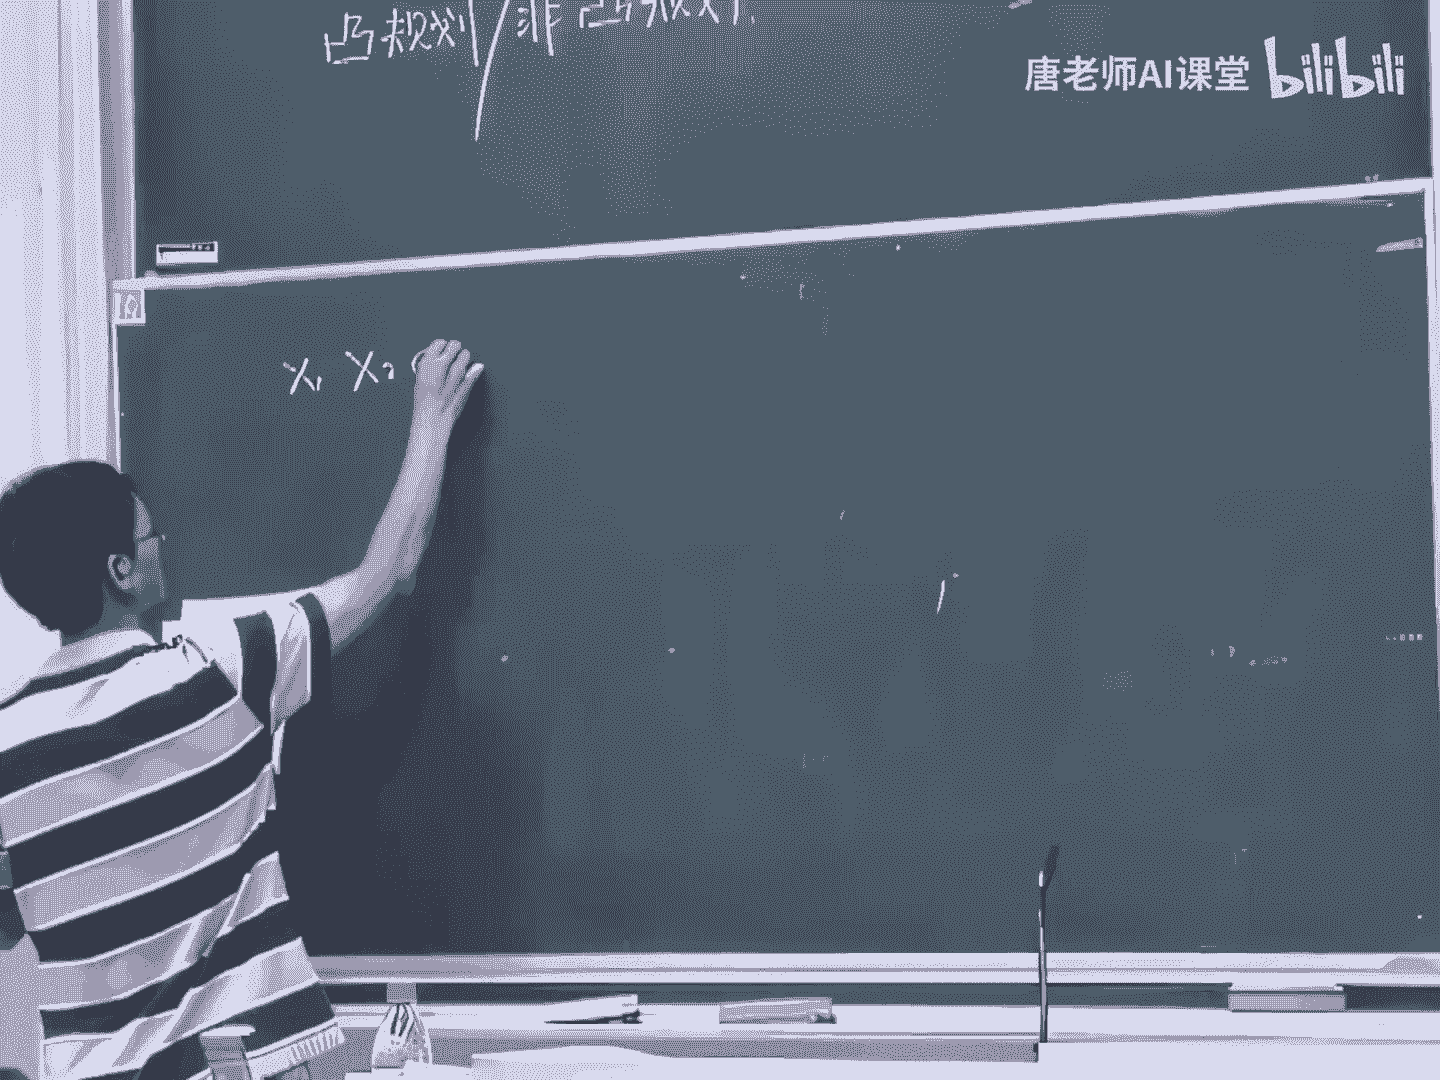 凸规划/非凸规划
唐老师AI课堂 bilibili
X₁ X₂